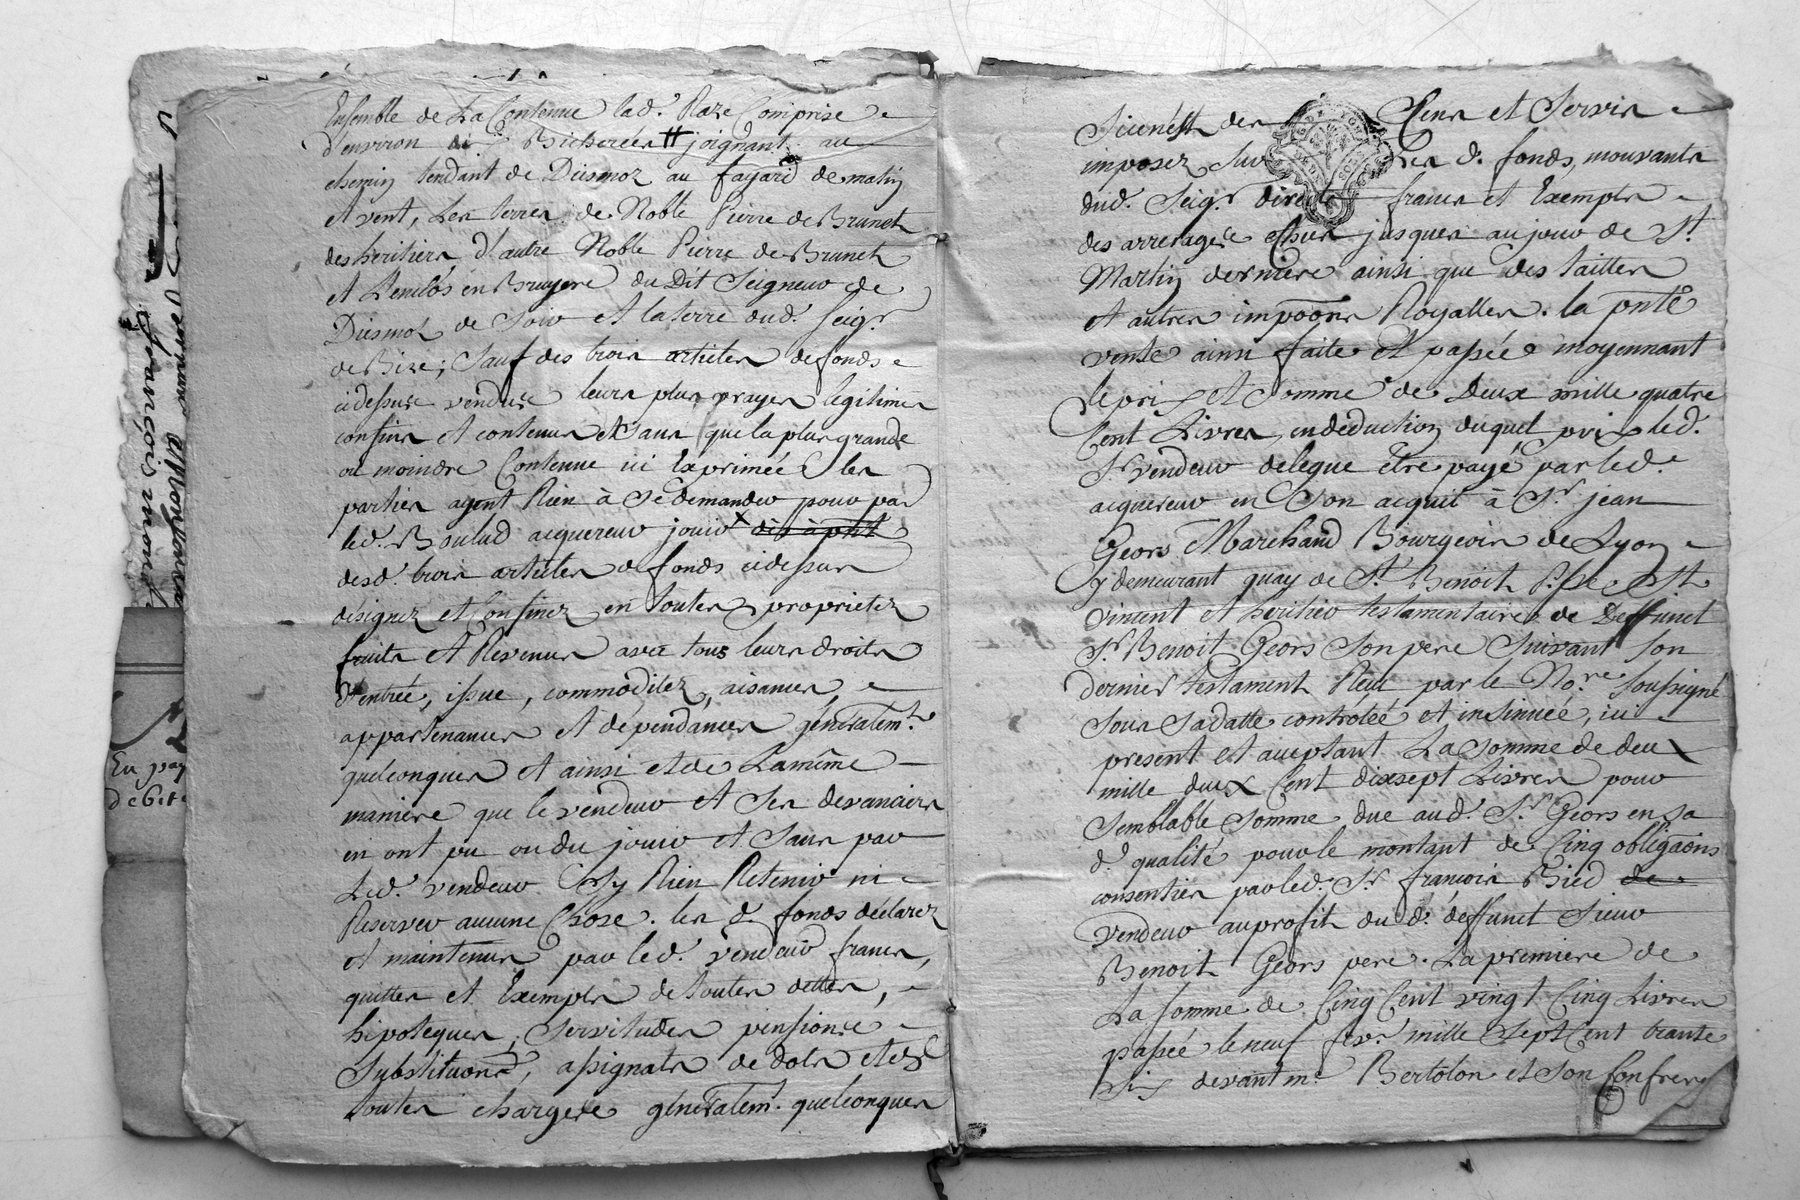 Ensemble de La Contenue lad.e Raze Comprise
d'environ Bicherées # joignant au
chemin tendant de Diesmoz au fayard de matin
et vent, Les terres de Noble Pierre de Brunet
des heritiers d'autre Noble Pierre de Brunet
et Lenclos en Bruyere du Dit Seigneur de
Diesmoz de Soir et la terre dud. Seigr
de Bize; Sauf des trois articles de fonds
cidessus vendus leurs plus vrayes legitimes
confins et contenues et sans que la plus grande
ou moindre Contenue ici Exprimée les
parties ayent Rien à se demander pour par
led. Boulud acquereur jouir x dès à pnt
desd. trois articles de fonds cidessus
désignez et Confinez en toutes proprietez
fruits et Revenus avec tous leurs droits
d'entrée, issue, commoditez, aisances,
appartenances et dépendances généralemt
quelconques et ainsi et de La même
maniere que le vendeur et Ses devanciers
en ont pu ou du jouir et Sans par
Led. vendeur S'y Rien Retenir ni
Reserver aucune Chose. les d. fonds déclarez
et maintenus par led. vendeur francs,
quittes et Exempts de toutes dettes,
hipoteques, Servitudes pensions
Substituons, assignats de dots et de
toutes charges généralemt. quelconques
Cens et Servis
imposez Sur Les d. fonds, mouvants
dud. Seigr. direct francs et Exempts
des arrerages Echus jusques au jour de St
Martin derniere ainsi que des tailles
et autres impoons Royalles. la pnte
vente ainsi faite et passée moyennant
le prix et Somme de Deux mille quatre
Cent Livres, en deduction duquel prix led.
Sr vendeur delegue être payé par led.
acquereur en Son acquit à Sr. jean
Geors Marchand Bourgeois de Lyon
y demeurant quay de St. Benoit P.sse St
Vincent et heritier testamentaire de Deffunct
Sr. Benoit Geors Son pere Suivant Son
dernier testament Reçu par le No.re Soussigné
Sous Sa datte controlée et insinuée, ici
present et acceptant La Somme de deux
mille deux Cent dixsept Livres pour
Semblable Somme due aud. Sr. Geors en sa
d. qualité pour le montant de Cinq obligaons
consenties par led. Sr. françois Bied de
vendeur au profit du d. deffunct Sieur
Benoit Geors pere. La premiere de
La Somme de Cinq Cent vingt Cinq Livres
passée le neuf fevr. mille Sept Cent trante
Six devant me. Bertolon et Son Confrere
françois
En pay